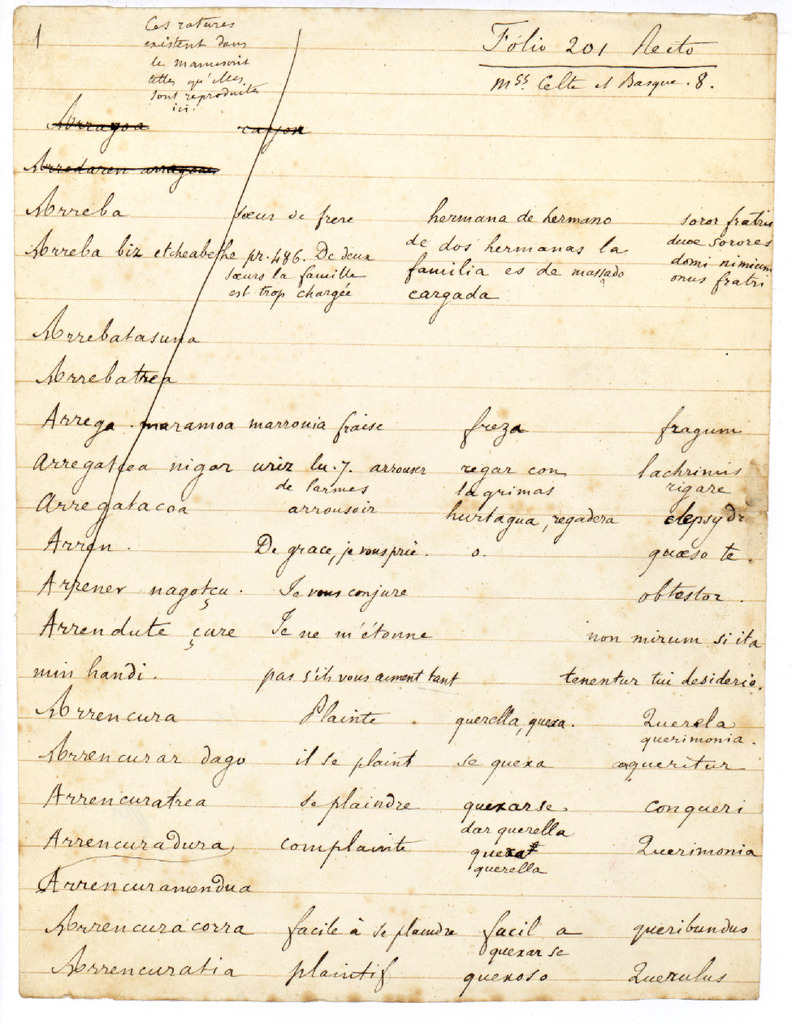 1
Ces ratures
existent dans
le manuscrit
telles qu'elles
sont reproduites
ici.
Folio 201 Recto
mss. Celte et Basque. 8.
Arragoa
Arrodaren arragoa
Arreba soeur de frere hermana de hermano soror fratris
Arreba biz etcheabethe pr. 486. De deux de dos hermanas la duae sorores
soeurs la famille familia es de massado domi nimium
est trop chargée cargada onus fratri
Arrebatasuna
Arrebatrea
Arrega maramoa marrouia fraise freza fragum
Arregatcea nigar uriz lu. 7. arrouser regar con lachrimis
de larmes lagrimas rigare
Arregatacoa arrousoir hurtagua, regadera clepsydr
Arren. De grace, je vous prie. o. quæso te.
Arrener nagotçu. Je vous conjure obtestor.
Arrendute çure Je ne m'étonne non mirum si ita
min handi. pas s'ils vous aiment tant tenentur tui desiderio.
Arrencura Plainte. querella, quexa. Querela
querimonia.
Arrencurar dago il se plaint se quexa queritur
Arrencuratrea se plaindre quexarse conqueri
dar querella
Arrencuradura complainte quexa Querimonia
querella
Arrencuramendua
Arrencuracorra facile à se plaindre facil a queribundus
quexarse
Arrencuratia plaintif quexoso Querulus